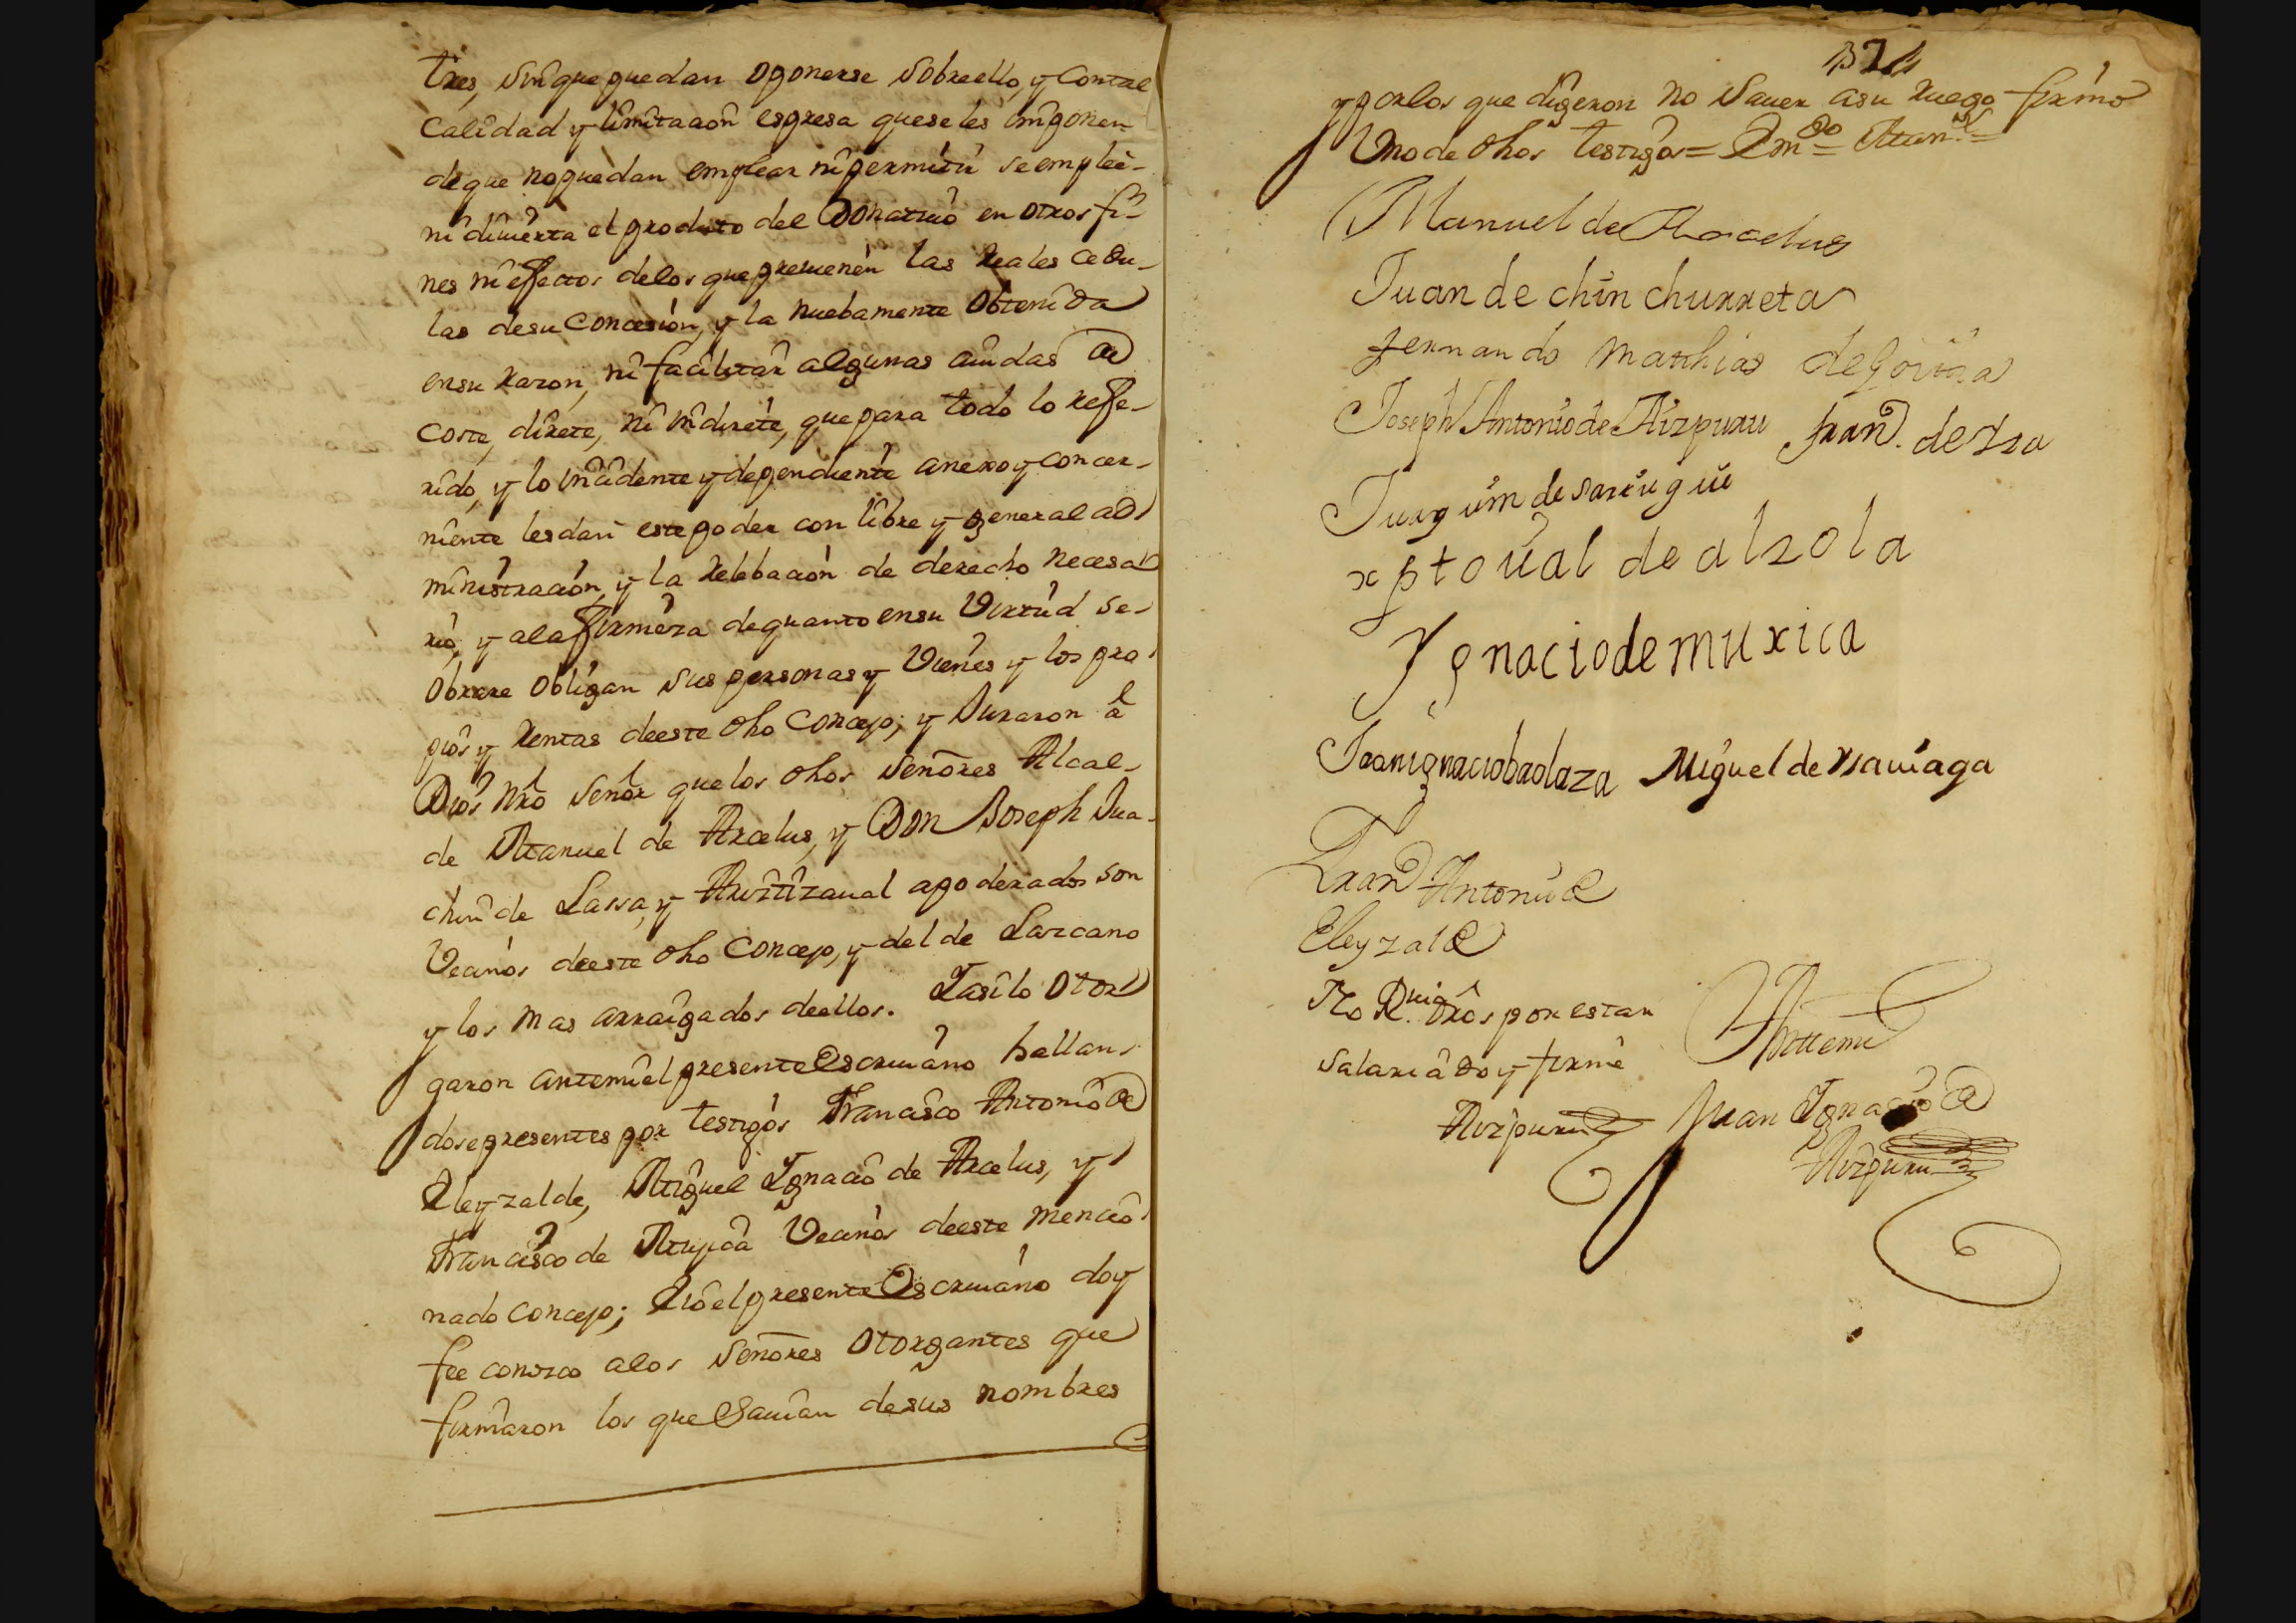 tres, sin que puedan oponerse sobre ello, y Con tal
Calidad y limitacion espresa que se les imponen
de que no puedan emplear ni permitir se emplee
ni divierta el produto del Donativo en otros fi-
nes ni efectos de los que previenen las Reales Cedu-
las de su Concesion, y la nuebamente Obtenida
en su razon, ni facilitar algunas aiudas de
Coste, direte, ni indirete, que para todo lo refe-
rido, y lo incidente y dependiente anexo y concer-
niente les dan este poder con libre y general ad
ministracion, y la relebacion de derecho necesa
rio, y a la firmeza de quanto en su Virtud se
Obrare Obligan sus personas y Vienes y los pro
pios y Rentas de este dho Concejo; y Juraron á
Dios nro Señor que los dhos Señores Alcal-
de Manuel de Arcelus, y Don Joseph Jua-
chin de Lassa, y Aristizaual apoderados son
Vecinos de este dho Concejo, y del de Lazcano
y los mas arraigados de ellos. Y asi lo Otor
garon ante mi el presente Escriuano hallan
dose presentes por testigos Francisco Antonio de
Eleyzalde, Miguel Ignacio de Arcelus, y
Francisco de Mujica Vecinos de este mencio
nado Concejo; E io el presente Escriuano doy
fee conozco a los Señores Otorgantes que
firmaron los que Sauian de sus nombres
y por los que dijeron no Sauer a su ruego firmo
Uno de dhos testigos = Em.do = Man.l =
Manuel de Arcelus
Juan de chinchurreta
fernando Matthias de Goitia
Joseph Antonio de Aizpuru fran.co de Isa
Juaquim de sariugui
xptoual de alzola
Ygnacio de muxica
Joan ignacio baolaza Miguel de Ysauiaga
Fran.co Antonio de
Eleyzalde
No R.ui dros por estar
salariado y firmé
Aizpuru
Ante mi
Juan Ignacio de
Aizpuru